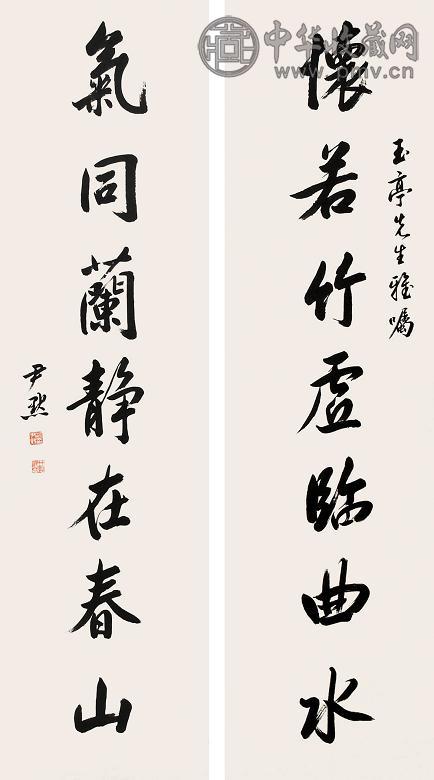 玉亭先生雅嘱
懷若竹虛臨曲水
氣同蘭静在春山
尹默
中华收藏网
www.pmv.cn